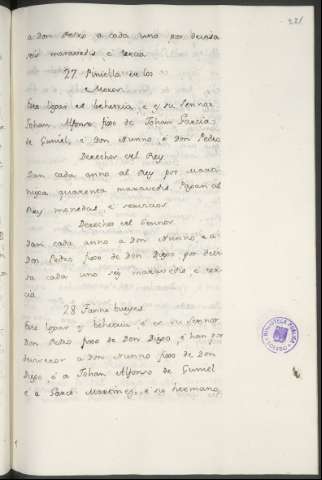 221
a don Pedro a cada uno por devisa
seis maravedis é tercia
27 Piniella de los
Moros
Este logar es behetria, é es su Sennor
Johan Alfonso fijo de Johan Garcia
de Gumiel, e Don Nunno, é Don Pedro
Derechos del Rey
Dan cada anno al Rey por Marti
niega quarenta maravedis. Pagan al
Rey monedas, é servicios
Derechos del Sennor
Dan cada anno a Don Nunno e a
Don Pedro fijo de Don Diego por devi
sa cada uno seis maravedis é ter
cia
28 Fanna bueyes
Este logar es behetria é es su Sennor
Don Pedro fijo de Don Diego, é han por
deviseros a Don Nunno fijo de Don
Diego, é a Johan Alfonso de Gumiel
e a Garci Martinez, é su hermano
BIBLIOTECA PUBLICA
TOLEDO